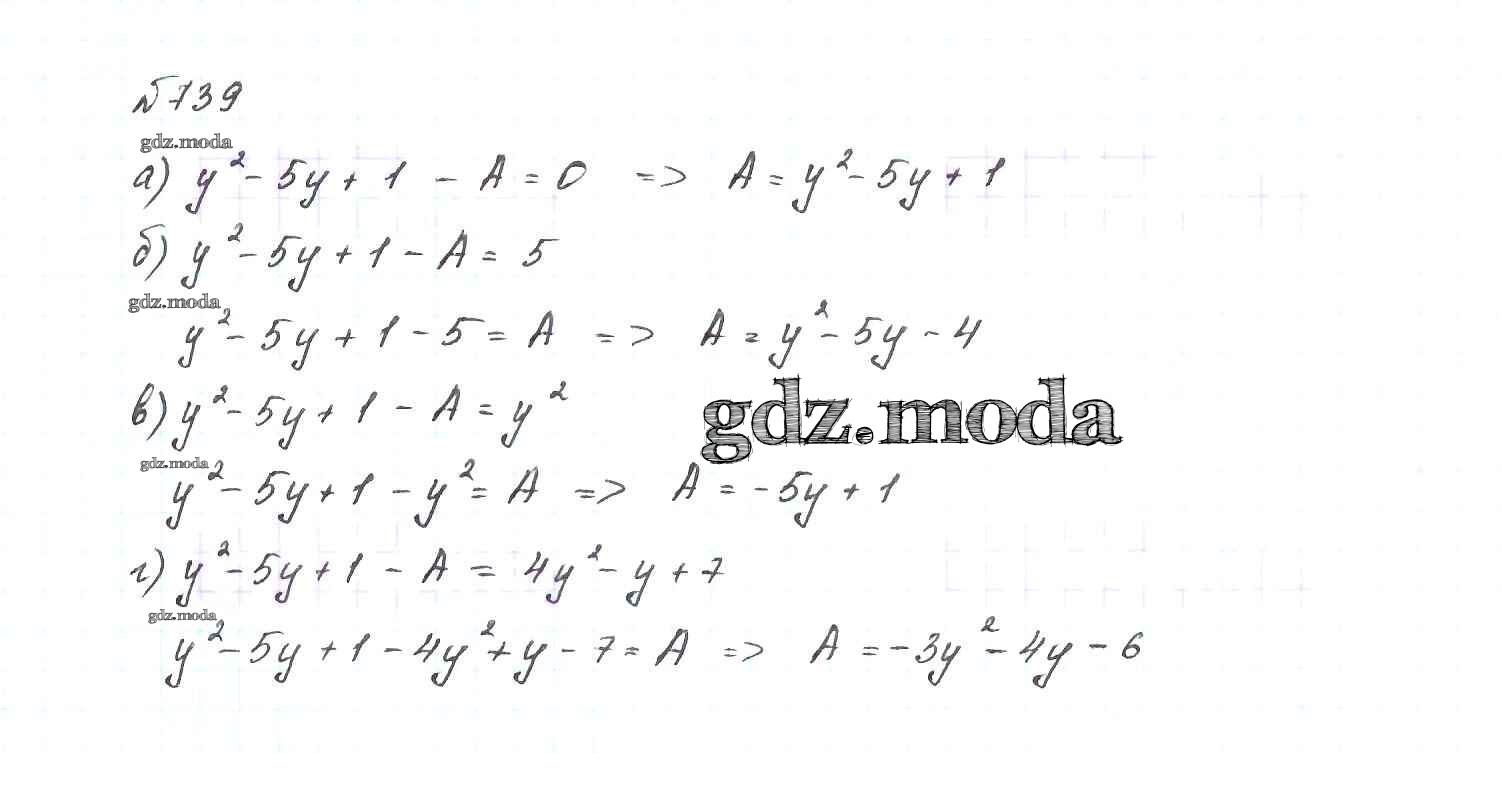 №739
gdz.moda
а) y²-5y+1 - A=0 => A=y²-5y+1
б) y²-5y+1-A=5
gdz.moda
y²-5y+1-5=A => A=y²-5y-4
в) y²-5y+1-A=y²
gdz.moda
gdz.moda
y²-5y+1-y²=A => A=-5y+1
г) y²-5y+1-A=4y²-y+7
gdz.moda
y²-5y+1-4y²+y-7=A => A=-3y²-4y-6